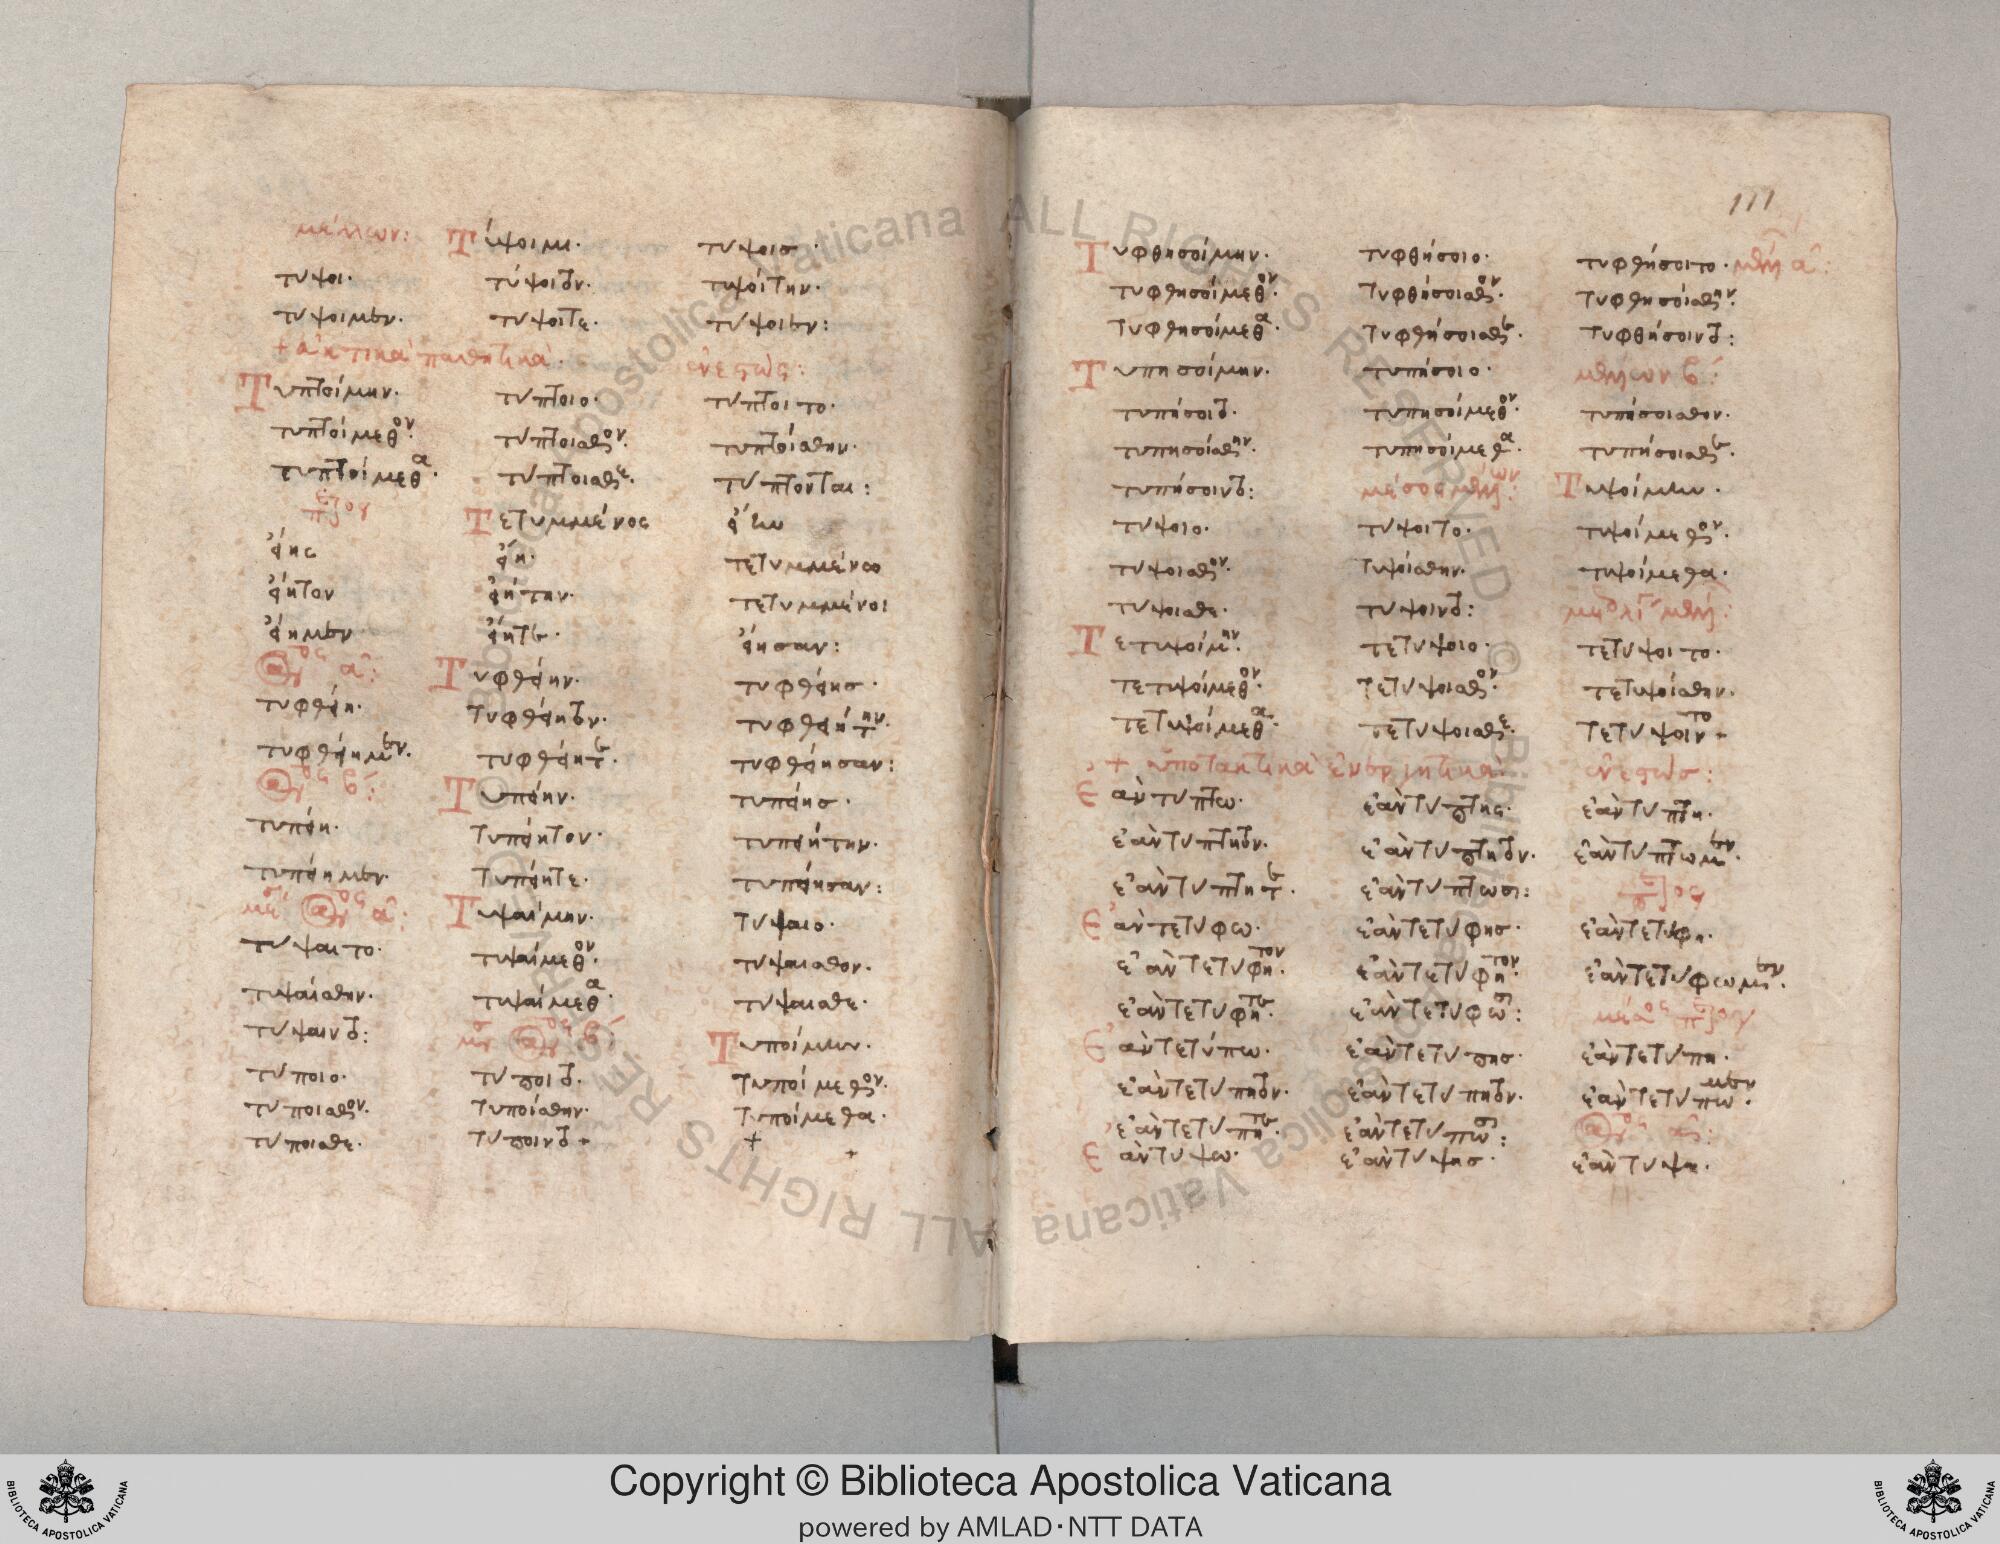 μέλλων: Τύψοιμι· τύψοισ·
τύψοι· τύψοιτον· τυψοίτην·
τύψοιμεν· τύψοιτε· τύψοιεν:
+ εὐκτικὰ παθητικὰ· ἐνεστώς:
Τυπτοίμην· τύπτοιο· τύπτοιτο·
τυπτοίμεθον· τύπτοισθον· τυπτοίσθην·
τυπτοίμεθα· τύπτοισθε· τύπτονται:
Τετυμμένος εἴην
εἴης εἴη· τετυμμένω
εἴητον εἰήτην· τετυμμένοι
εἴημεν εἴητε· εἴησαν:
Τυφθείην· τυφθείησ·
τυφθείη· τυφθείητον· τυφθειήτην·
τυφθείημεν· τυφθείητε· τυφθείησαν:
Τυπείην· τυπείησ·
τυπείη· τυπείητον· τυπειήτην·
τυπείημεν· τυπείητε· τυπείησαν:
Τυψαίμην· τύψαιο·
τύψαιτο· τυψαίμεθον· τύψαισθον·
τυψαίσθην· τυψαίμεθα· τύψαισθε·
τύψαιντο:
Τυποίμην·
τύποιο· τύποιτο· τυποίμεθον·
τύποισθον· τυποίσθην· τυποίμεθα·
τύποισθε· τύποιντο + +
111
Τυφθησοίμην· τυφθήσοιο· τυφθήσοιτο·
τυφθησοίμεθον· τυφθήσοισθον· τυφθησοίσθην·
τυφθησοίμεθα· τυφθήσοισθε· τυφθήσοιντο:
Τυπησοίμην· τυπήσοιο· μέλλων β:
τυπήσοιτο· τυπησοίμεθον· τυπήσοισθον·
τυπησοίσθην· τυπησοίμεθα· τυπήσοισθε·
τυπήσοιντο: μέσος μέλλων: Τυψοίμην·
τύψοιο· τύψοιτο· τυψοίμεθον·
τύψοισθον· τυψοίσθην· τυψοίμεθα·
τύψοισθε· τύψοιντο:
Τετυψοίμην· τετύψοιο· τετύψοιτο·
τετυψοίμεθον· τετύψοισθον· τετυψοίσθην·
τετυψοίμεθα· τετύψοισθε· τετύψοιντο
+ ὑποτακτικὰ ἐνεργητικὰ· ἐνεστώσ:
Ἐὰν τύπτω· ἐὰν τύπτης· ἐὰν τύπτη·
ἐὰν τύπτητον· ἐὰν τύπτητον· ἐὰν τύπτωμεν·
ἐὰν τύπτητε· ἐὰν τύπτωσι:
Ἐὰν τετύφω· ἐὰν τετύφησ· ἐὰν τετύφη·
ἐὰν τετύφητον· ἐὰν τετύφητον· ἐὰν τετύφωμεν·
ἐὰν τετύφητε· ἐὰν τετύφωσι:
Ἐὰν τετύπω· ἐὰν τετύπησ· ἐὰν τετύπη·
ἐὰν τετύπητον· ἐὰν τετύπητον· ἐὰν τετύπωμεν·
ἐὰν τετύπητε· ἐὰν τετύπωσι:
Ἐὰν τύψω· ἐὰν τύψησ· ἐὰν τύψη·
Vaticana ALL RIGHTS RESERVED © Biblioteca Apostolica Vaticana ALL RIGHTS RESERVED © Biblioteca Apostolica
Copyright © Biblioteca Apostolica Vaticana
powered by AMLAD·NTT DATA
BIBLIOTECA APOSTOLICA VATICANA
BIBLIOTECA APOSTOLICA VATICANA